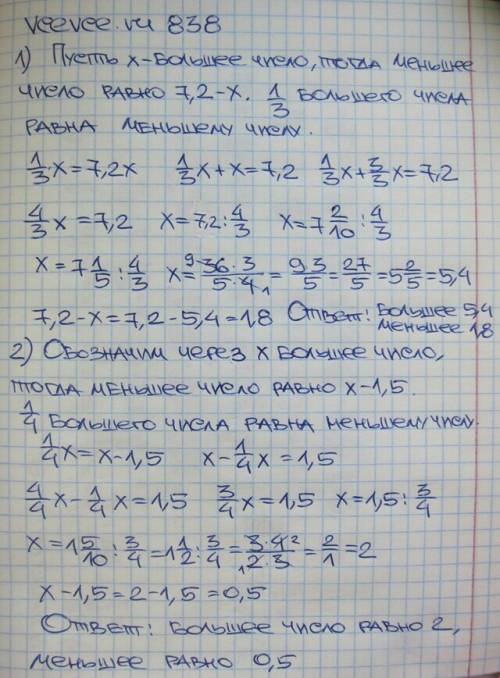 veevee.ru 838
1) Пусть x-большее число, тогда меньшее
число равно 7,2-x. 1/3 большего числа
равна меньшему числу.
1/3x=7,2x 1/3x+x=7,2 1/3x+3/3x=7,2
4/3x=7,2 x=7,2:4/3 x=7 2/10:4/3
x=7 1/5:4/3 x=9 36·3/5·4 1=93/5=27/5=5 2/5=5,4
7,2-x=7,2-5,4=1,8 Ответ: большее 5,4
меньшее 1,8
2) Обозначим через x большее число,
тогда меньшее число равно x-1,5.
1/4 большего числа равна меньшему числу.
1/4x=x-1,5 x-1/4x=1,5
4/4x-1/4x=1,5 3/4x=1,5 x=1,5:3/4
x=1 5/10:3/4=1 1/2:3/4=3·4 2/1 2·3=2/1=2
x-1,5=2-1,5=0,5
Ответ: большее число равно 2,
меньшее равно 0,5